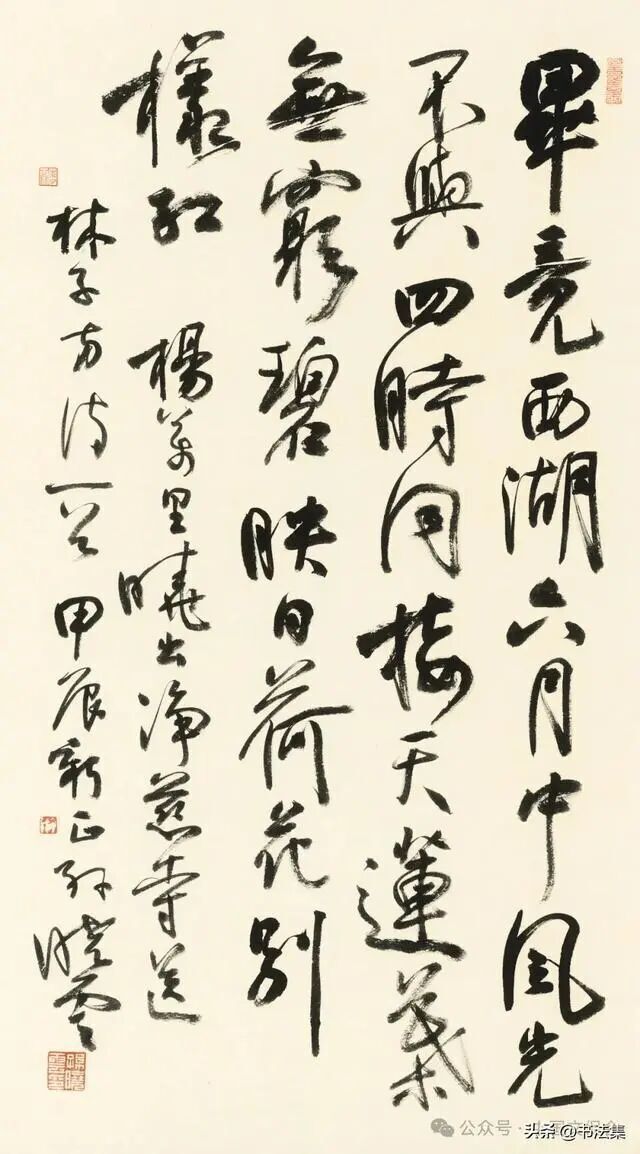 畢竟西湖六月中風光
不與四時同接天蓮葉
無窮碧映日荷花別
樣紅 楊萬里曉出净慈寺送
林子方詩一首 甲辰新正孫曉雲
公众号
头条@书法集